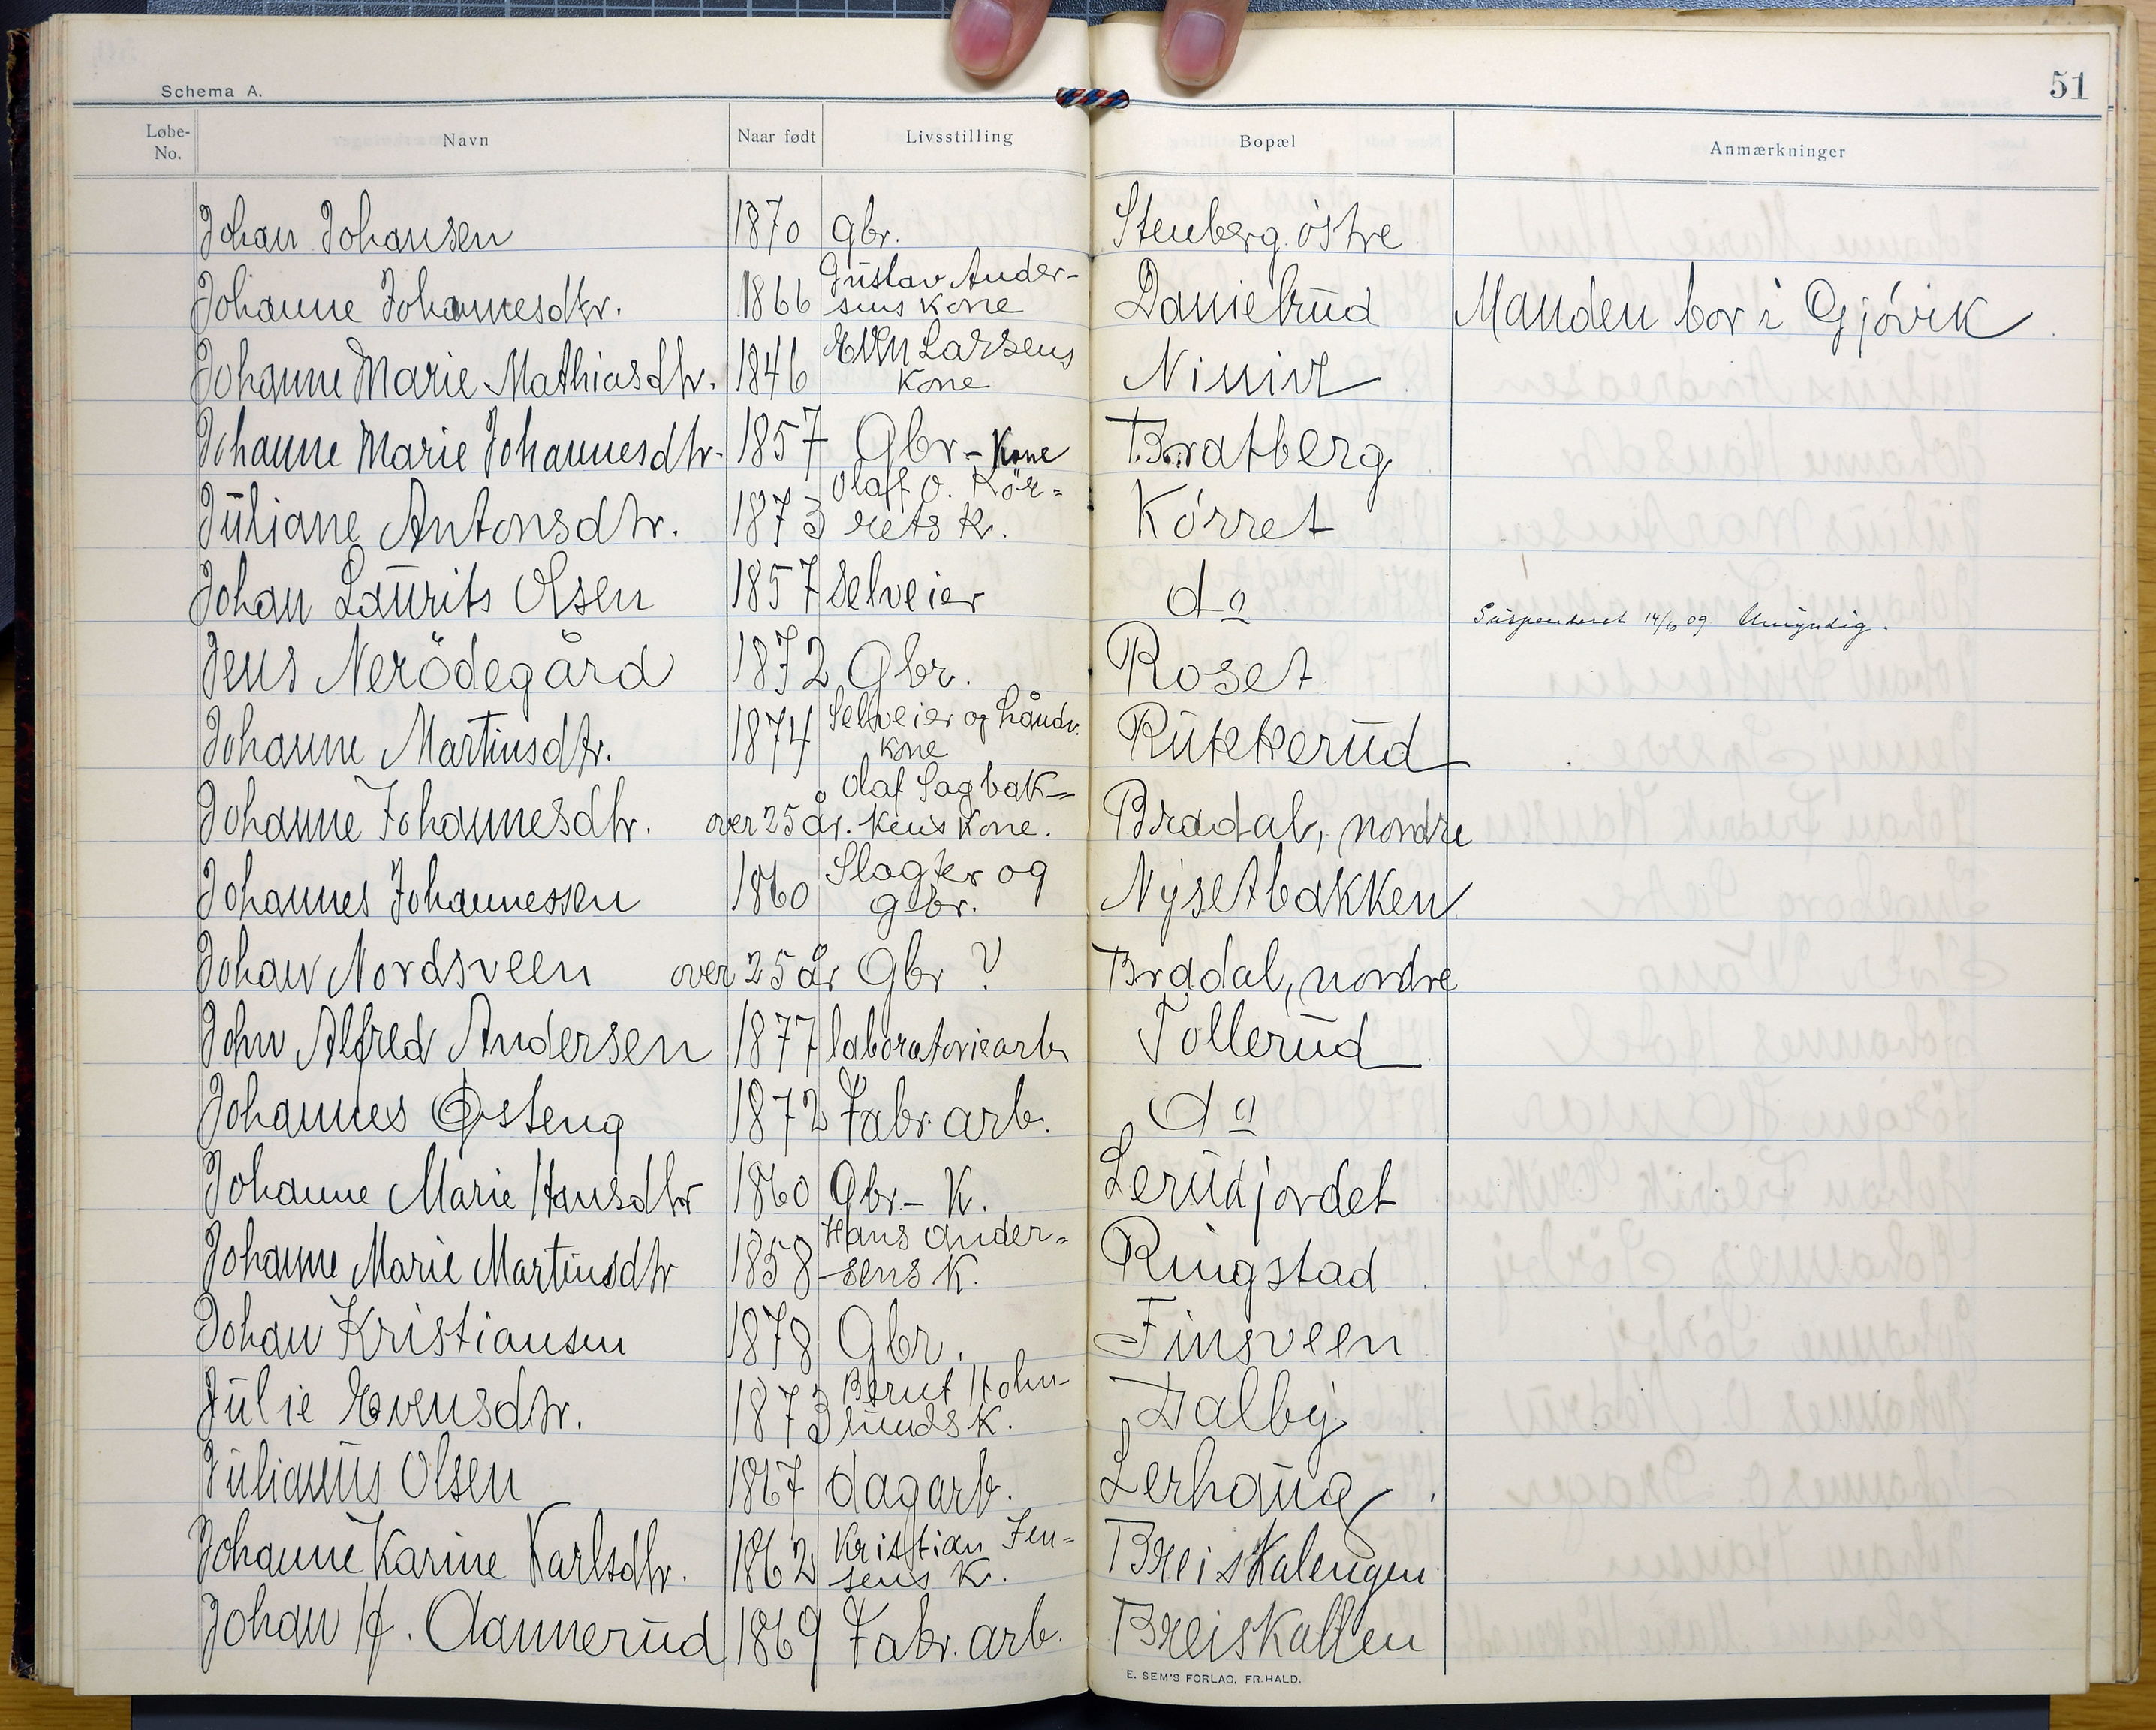 Schema A.
51
Løbe-No. Navn Naar født Livsstilling Bopæl Anmærkninger
Johan Johansen 1870 gbr. Stenberg östre
Johanne Johannesdtr. 1866 Gustav Ander-sens kone Danielrud Manden bor i Gjövik
Johanne Marie Mathiasdtr. 1846 Even Larsens kone
Johanne Marie Johannesdtr. 1857 Gbr-kone Bratberg
Juliane Antonsdtr. 1873 Olaf O. Kör=rets k. Körret
Johan Laurits Olsen 1857 Selveier do Suspenderet 14/10 09 Umyndig.
Jens Nerödegård 1872 Gbr. Roset
Johanne Martinsdtr. 1874 Selveier og håndv. kone Rukkerud
Johanne Johannesdtr. over 25 år. Olaf Sagbak=kens kone. Bradal, nordre
Johannes Johannessen 1860 Slagter og gbr. Nysetbakken
Johan Nordsveen over 25 år Gbr ? Bradal, nordre
John Alfred Andersen 1877 laboratoriearb. Tollerud
Johannes Østeng 1872 Fabr. arb. do
Johanne Marie Hansdtr 1860 Gbr.- K. Lerudjordet
Johanne Marie Martinsdtr 1858 Hans Ander=sens K. Ringstad
Johan Kristiansen 1878 Gbr. Finsveen
Julie Evensdtr. 1873 Bernt Holm-lunds K. Dalby
Julianus Olsen 1867 dagarb. Lerhaug
Johanne Karine Karlsdtr. 1862 Kristian Jen=sens K. Breiskalengen
Johan H. Aannerud 1869 Fabr. arb. Breiskallen
E. SEM'S FORLAG, FR.HALD.